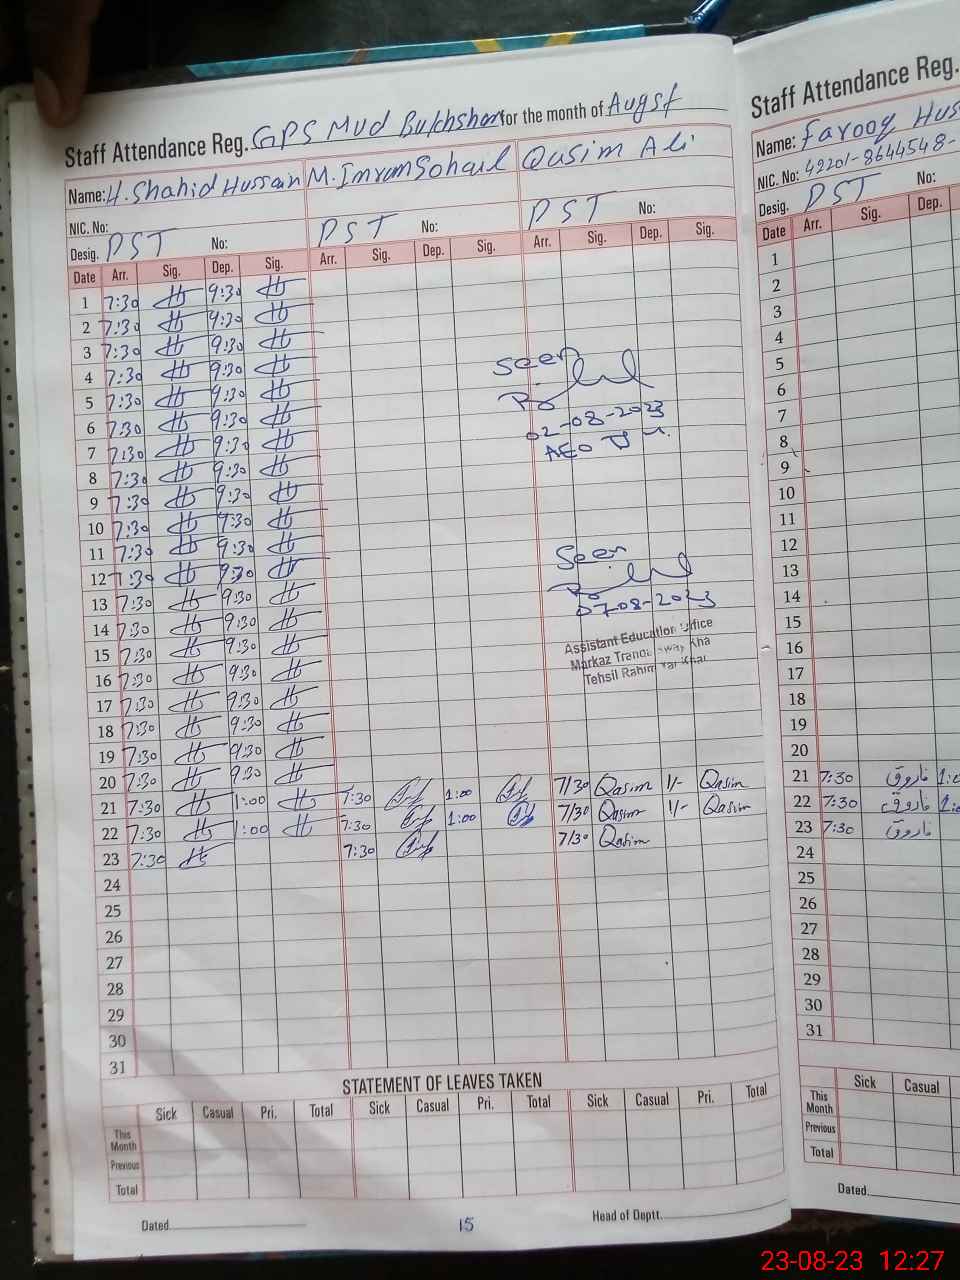 Staff Attendance Reg. GPS Mud Bukhshan for the month of Augst
Name: H. Shahid Hussain M. Imran Sohail Qasim Ali
NIC. No:
Desig. PST No: PST No: PST No:
Date Arr. Sig. Dep. Sig. Arr. Sig. Dep. Sig. Arr. Sig. Dep. Sig.
1 7:30 9:30
2 7:30 9:30
3 7:30 9:30
4 7:30 9:30
5 7:30 9:30
6 7:30 9:30
7 7:30 9:30
8 7:30 9:30
9 7:30 9:30
10 7:30 9:30
11 7:30 9:30
12 7:30 9:30
13 7:30 9:30
14 7:30 9:30
15 7:30 9:30
16 7:30 9:30
17 7:30 9:30
18 7:30 9:30
19 7:30 9:30
20 7:30 9:30
21 7:30 1:00 7:30 1:00 7/30 Qasim 1/- Qasim
22 7:30 1:00 7:30 1:00 7/30 Qasim 1/- Qasim
23 7:30 7:30 7/30 Qasim
24
25
26
27
28
29
30
31
Seen
02-08-2023
AEO
Seen
07-08-2023
Assistant Education Office
Markaz
Tehsil Rahim Yar Khan
STATEMENT OF LEAVES TAKEN
Sick Casual Pri. Total Sick Casual Pri. Total Sick Casual Pri. Total
This Month
Previous
Total
Dated
15
Head of Deptt.
Staff Attendance Reg.
Name: Farooq Hus
NIC. No: 42201-8644548-
Desig. PST No:
Date Arr. Sig. Dep.
1
2
3
4
5
6
7
8
9
10
11
12
13
14
15
16
17
18
19
20
21 7:30 فاروق 1:0
22 7:30 فاروق 1:0
23 7:30 فاروق
24
25
26
27
28
29
30
31
Sick Casual
This Month
Previous
Total
Dated.
23-08-23 12:27